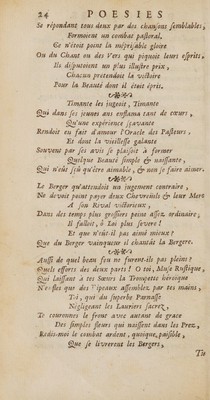 24 POESIES
Se répondant tous deux par des chansons semblables,
Formoient un combat pastoral,
Ce n'étoit point la méprisable gloire
Ou du Chant ou des Vers qui piquoit leurs esprits,
Ils disputoient un plus illustre prix,
Chacun pretendoit la victoire
Pour la Beauté dont il étoit épris.
Timante les jugeoit, Timante
Qui dans ses jeunes ans enflama tant de cœurs,
Qu'une expérience sçavante
Rendoit en fait d'amour l'Oracle des Pasteurs.
Et dont la vieillesse galante
Souvent par ses avis se plaisoit à former
Quelque Beauté simple & naissante,
Qui n'eût sçu qu'être aimable, & non se faire aimer.
Le Berger qu'attendoit un jugement contraire,
Ne devoit point payer deux Chevreuils & leur Mere
A son Rival victorieux,
Dans des temps plus grossiers peine assez ordinaire,
Il falloit, ô Loi plus severe!
Et que n'eût-il pas aimé mieux?
Que du Berger vainqueur il chantât la Bergere.
Aussi de quel beau feu ne furent-ils pas pleins?
Quels efforts des deux parts! O toi, Muse Rustique,
Qui laissant à tes Sœurs la Trompette héroïque
N'enfles que des Pipeaux assemblez par tes mains,
Toi, qui du superbe Parnasse
Négligeant les Lauriers sacrez,
Te couronnes le front avec autant de grace
Des simples fleurs qui naissent dans les Prez,
Redis-moi le combat ardent, quoique, paisible,
Que se livrerent les Bergers,